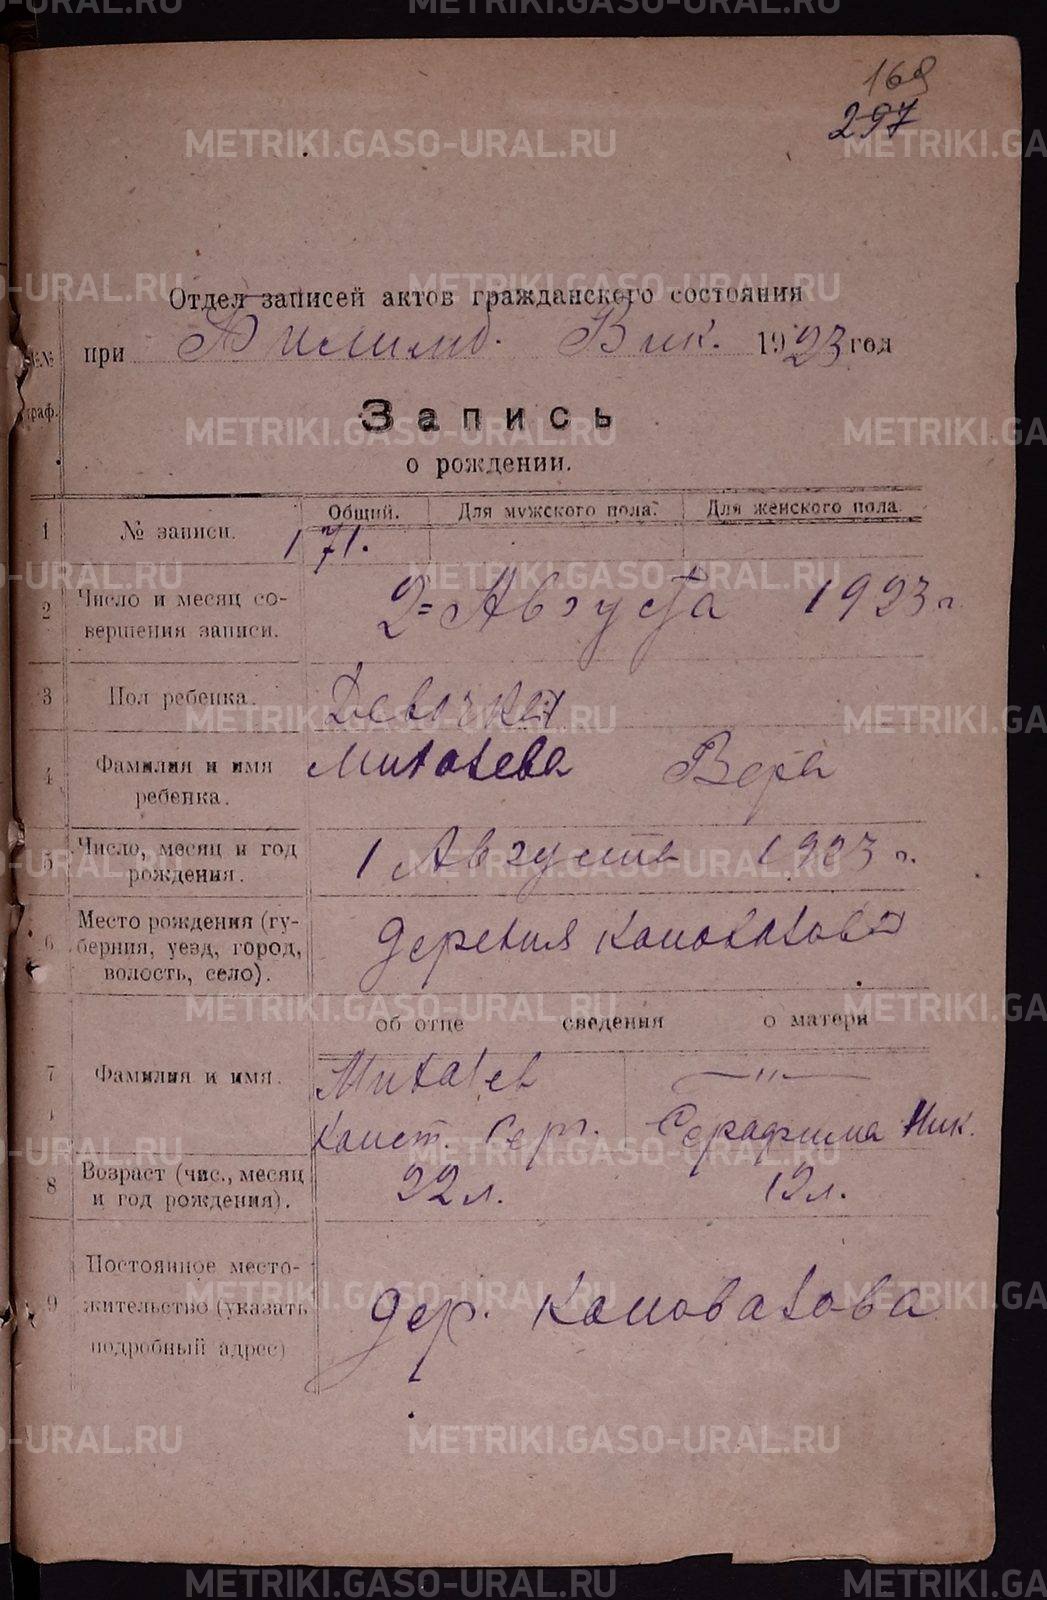 169
297
Отдел записей актов гражданского состояния
при Вик. 1923 год
№№
граф.
Запись
о рождении.
Общий. Для мужского пола. Для женского пола
1 № записи. 171.
2 Число и месяц со-
вершения записи. 2= Августа 1923 г.
3 Пол ребенка. Девочка
4 Фамилия и имя
ребенка. Михалева Вера
5 Число, месяц и год
рождения. 1 Августа 1923 г.
6 Место рождения (гу-
берния, уезд, город,
волость, село). деревня Коновалова
об отце сведения о матери
7 Фамилия и имя. Михалев —"—
Конст. Серг. Серафима Ник.
8 Возраст (чис., месяц
и год рождения). 22 л. 19 л.
9 Постоянное место-
жительство (указать
подробный адрес) дер. Коновалова
METRIKI.GASO-URAL.RU